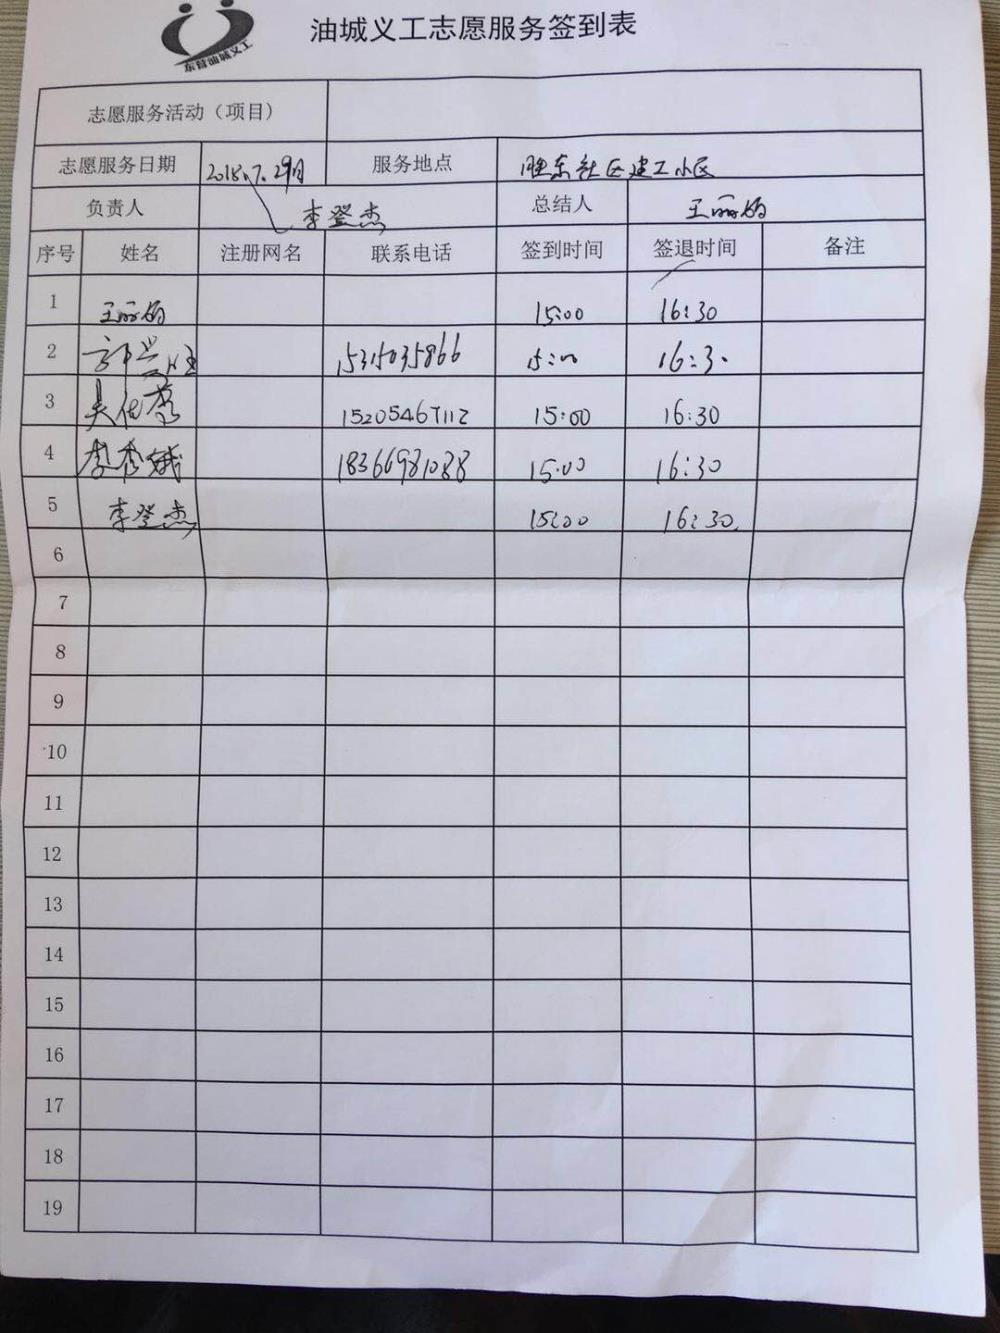 东营油城义工
油城义工志愿服务签到表
志愿服务活动（项目）
志愿服务日期 2018.7.29日 服务地点 胜东社区建工小区
负责人 李登杰 总结人 王丽娟
序号 姓名 注册网名 联系电话 签到时间 签退时间 备注
1 王丽娟 15:00 16:30
2 15315035866 15:00 16:30
3 15205467112 15:00 16:30
4 李秀娥 18366981088 15:00 16:30
5 李登杰 15:00 16:30
6
7
8
9
10
11
12
13
14
15
16
17
18
19